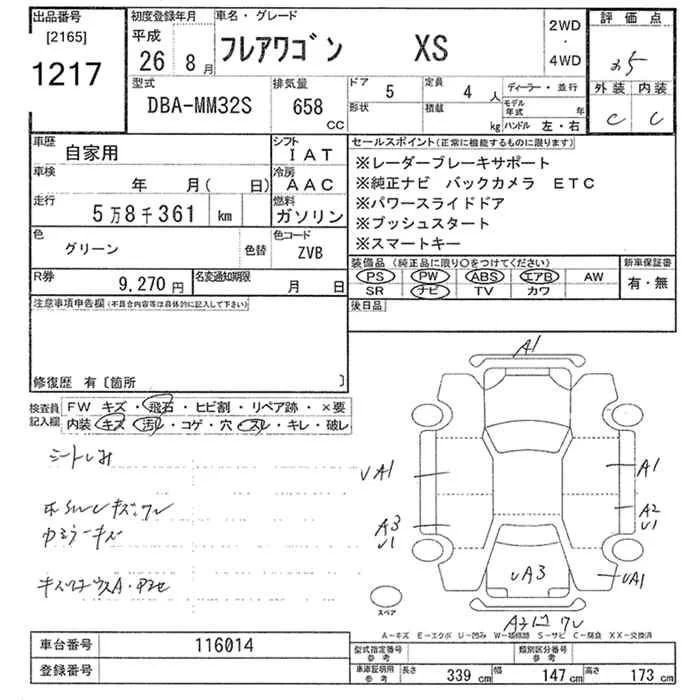 出品番号 初度登録年月 車名・グレード 2WD 評価点
[2165] 平成 ・
1217 26 8月 フレアワゴン XS 4WD 3.5
型式 排気量 ドア 5 定員 4人 ディーラー・並行 外装 内装
DBA-MM32S 658 CC 形状 積載 kg モデル年式 年 C C
ハンドル 左・右
車歴 自家用 シフト IAT セールスポイント(正常に機能するものに限ります)
車検 年 月( 日) 冷房 AAC ※レーダーブレーキサポート
※純正ナビ バックカメラ ETC
走行 5万8千361 km 燃料 ガソリン ※パワースライドドア
※プッシュスタート
色 グリーン 色替 色コード ZVB ※スマートキー
装備品(純正品に限り○をつけてください) 新車保証書
R券 9,270円 名変通知期限 月 日 PS PW ABS エアB AW 有・無
SR ナビ TV カワ
注意事項申告欄(不具合内容等は具体的に記入して下さい) 後日品
修復歴 有[箇所 ]
検査員記入欄 FW キズ・飛石・ヒビ割・リペア跡・×要
内装 キズ・汚レ・コゲ・穴・スレ・キレ・破レ
シートしみ
A1
√A1 A1
A3 √1 A2 √1
√A3 √A1
スペア
A-キズ E-エクボ U-凹み W-補修跡 S-サビ C-腐食 XX-交換済
車台番号 116014 型式指定番号 参考 類別区分番号 参考
登録番号 車庫証明用 参考 長さ 339cm 幅 147cm 高さ 173cm